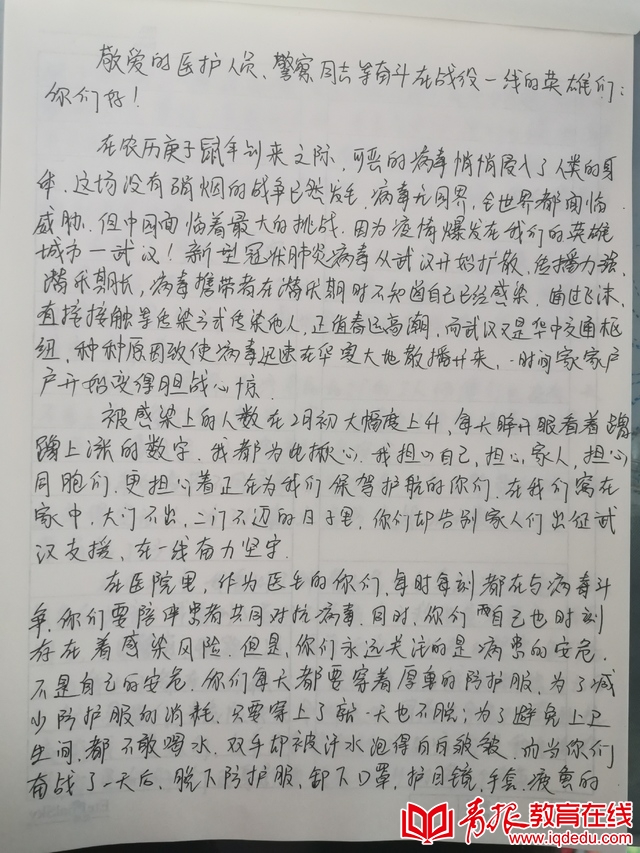 敬爱的医护人员、警察同志等奋斗在战役一线的英雄们：
你们好！
在农历庚子鼠年到来之际，可恶的病毒悄悄侵入了人类的身
体，这场没有硝烟的战争已然发生，病毒无国界，全世界都面临
威胁，但中国面临着最大的挑战，因为疫情爆发在我们的英雄
城市—武汉！新型冠状肺炎病毒从武汉开始扩散，传播力强，
潜伏期长，病毒携带者在潜伏期时不知道自己已经感染，通过飞沫，
直接接触等传染方式传染他人，正值春运高潮，而武汉又是华中交通枢
纽，种种原因致使病毒迅速在华夏大地散播开来，一时间家家户
户开始变得胆战心惊.
被感染上的人数在2月初大幅度上升，每天睁开眼看着蹭
蹭上涨的数字，我都为此揪心，我担心自己，担心家人，担心
同胞们，更担心着正在为我们保驾护航的你们，在我们窝在
家中，大门不出，二门不迈的日子里，你们却告别家人们出征武
汉支援，在一线奋力坚守.
在医院里，作为医生的你们，每时每刻都在与病毒斗
争，你们要陪伴患者共同对抗病毒，同时，你们自己也时刻
存在着感染风险，但是，你们永远关注的是病患的安危，
不是自己的安危，你们每天都要穿着厚重的防护服，为了减
少防护服的消耗，只要穿上了就一天也不脱；为了避免上卫
生间，都不敢喝水，双手却被汗水泡得白白皱皱，而当你们
奋战了一天后，脱下防护服，卸下口罩，护目镜，手套，疲惫的
青报教育在线
www.iqdedu.com